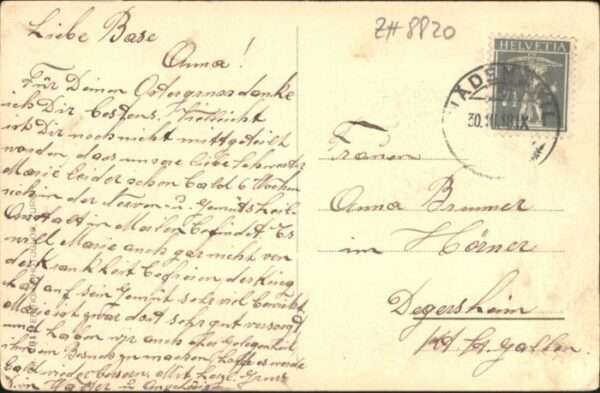 Liebe Base
Anna!
Für Deinen Ostergruss danke
ich Dir bestens. Vielleicht
ist Dir noch nicht mitgeteilt
worden, dass unsere liebe Schwester
Marie leider schon bald 6 Wochen
sich in der Nerven u. Gemütsheil-
Anstalt in Meilen befindet. Es
will Marie auch gar nicht von
der Krankheit befreien der Krieg
hat auf sein Gemüt sehr viel bewirkt
Marie ist zwar dort sehr gut versorgt
und haben wir auch eher Gelegenheit
ihr ein Besuch zu machen, hoffe es werde
bald wieder bessern. Mit herzl. Gruss
Z#8820
HELVETIA
30. III. 18. IX
Frauen
Anna Brunner
im Hörner
Degersheim
Kt. St. Gallen.